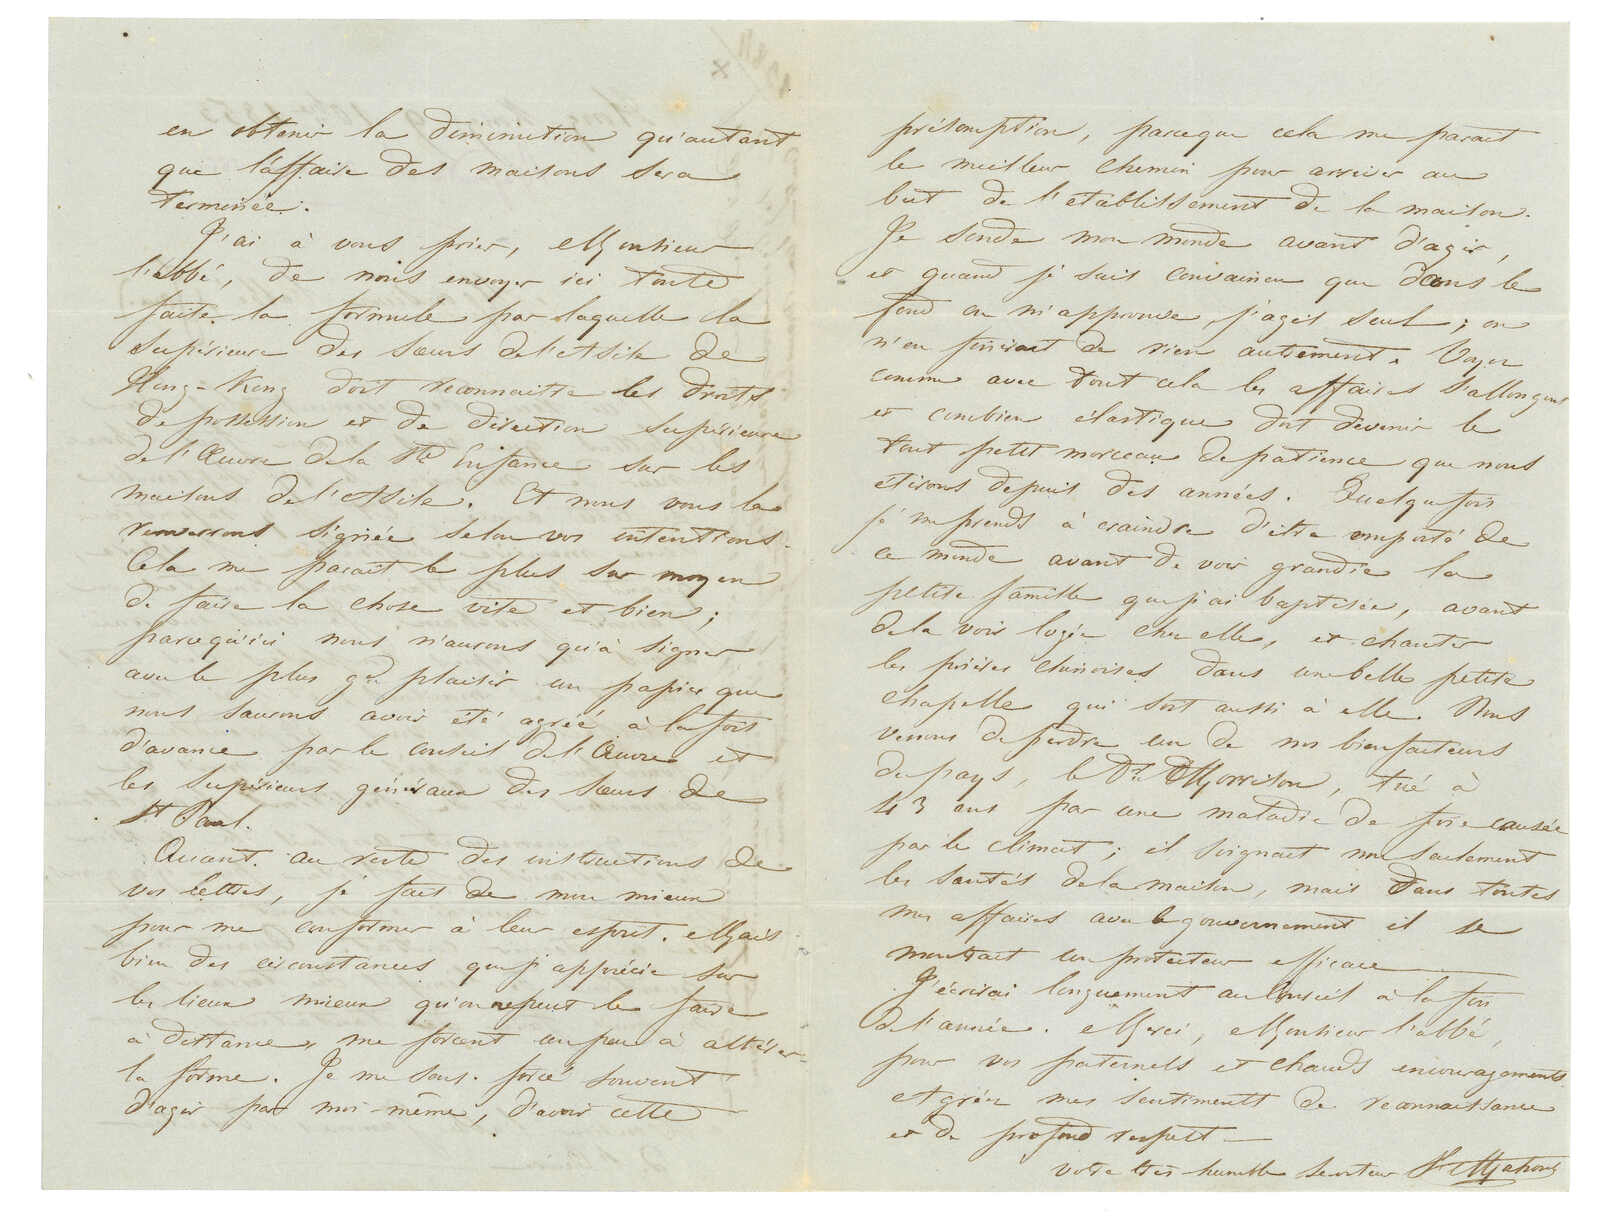 en obtenir la diminution qu'autant
que l'affaire des maisons sera
terminée.
J'ai à vous prier, Monsieur
l'abbé, de nous envoyer ici toute
faite la formule par laquelle la
Supérieure des Sœurs de l'Asile de
Hong-Kong doit reconnaitre les droits
de possession et de direction supérieure
de l'Œuvre de la Ste Enfance sur les
maisons de l'Asile. Et nous vous la
renverrons signée selon vos intentions.
Cela me parait le plus sur moyen
de faire la chose vite et bien;
parcequ'ici nous n'aurons qu'à signer
avec le plus gd plaisir un papier que
nous saurons avoir été agréé à la fois
d'avance par le conseil de l'Œuvre et
les Supérieurs généraux des Sœurs de
St Paul.
Quant au reste des instructions de
vos lettres, je fais de mon mieux
pour me conformer à leur esprit. Mais
bien des circonstances que j'apprécie sur
les lieux mieux qu'on ne peut le faire
à distance, me forcent un peu à altérer
la forme. Je me sens forcé souvent
d'agir par moi-même, d'avoir cette
présomption, parceque cela me parait
le meilleur chemin pour arriver au
but de l'etablissement de la maison.
Je sonde mon monde avant d'agir,
et quand je suis convaincu que dans le
fond on m'approuve, j'agis seul; on
n'en finirait de rien autrement. Voyez
comme avec tout cela les affaires s'allongent
et combien élastique doit devenir le
tout petit morceau de patience que nous
étirons depuis des années. Quelquefois
je me prends à craindre d'être emporté de
ce monde avant de voir grandir la
petite famille que j'ai baptisée, avant
de la voir logée chez elle, et chanter
les prières chinoises dans une belle petite
chapelle qui soit aussi à elle. Nous
venons de perdre un de nos bienfaiteurs
du pays, le Dr. Morrison, tué à
43 ans par une maladie de foie causée
par le climat; il soignait non seulement
les santés de la maison, mais dans toutes
mes affaires avec le gouvernement il se
montrait un protecteur efficace
J'écrirai longuement au Conseil à la fin
de l'année. Merci, Monsieur l'abbé,
pour vos paternels et chauds encouragements
et gréez mes sentiments de reconnaissance
et de profond respect
votre très humble serviteur